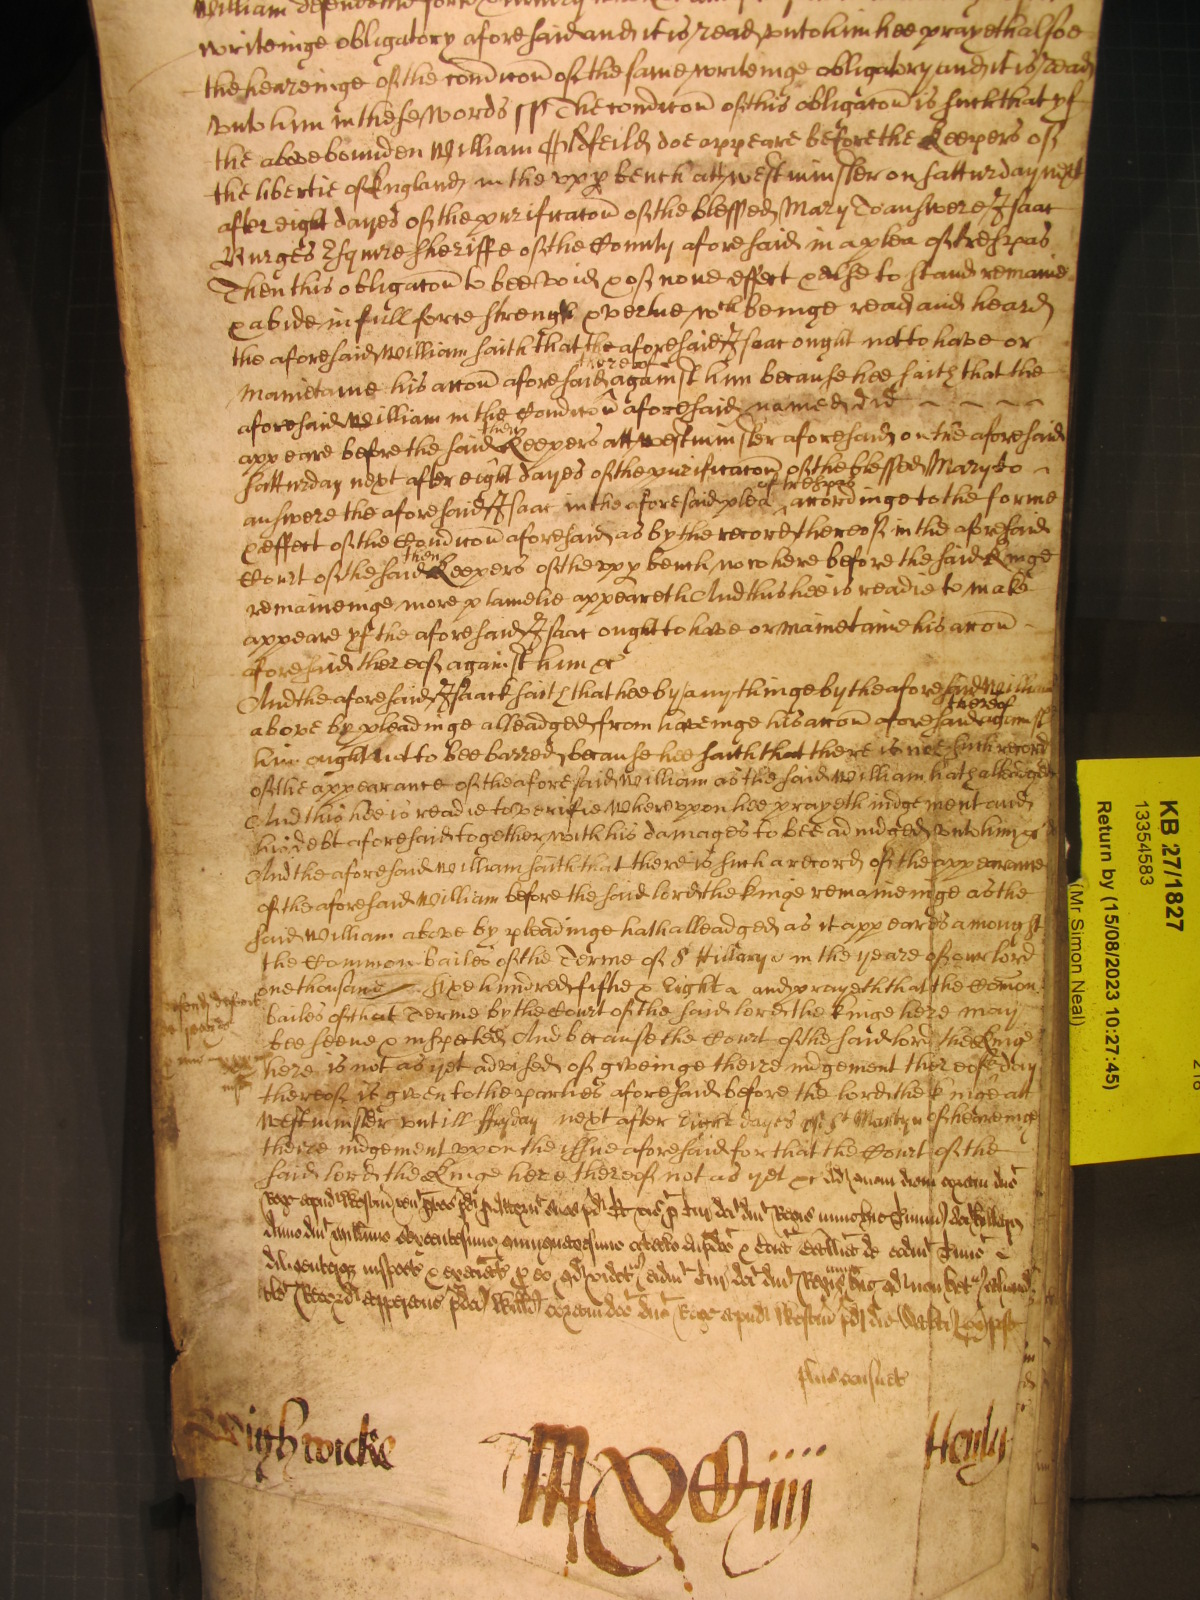 William
writeinge obligatory aforesaid and it is read unto him hee prayeth alsoe
the heareinge of the condicon of the same writeinge obligatory and it is read
unto him in these words ss The condicon of this obligacon is such that yf
the above bounden William Oldfeild doe appeare before the Keepers of
the libertie of England in the upp bench att Westminster on Satturday next
after eight dayes of the purificacon of the blessed Mary To answere Isaac
Burges Esquire sheriffe of the County aforesaid in a plea of trespas
Then this obligacon to bee void & of none effect & else to stand remaine
& abide in full force strength & vertue wch beinge read and heard
the aforesaid William saith that the aforesaid Isaac ought not to have or
thereof
Mainetaine his accon aforesaid against him because hee saith that the
aforesaid William in the Condicon aforesaid named did
then
appeare before the said Keepers att Westminster aforesaid on the aforesaid
Satturday next after eight dayes of the purificacon of the blessed Mary to
of trespas
answere the aforesaid Isaac in the aforesaid plea accordinge to the forme
& effect of the Condicon aforesaid as by the record thereof in the aforesaid
then
Court of the said Keepers of the upp bench now here before the said Kinge
remaineinge more plainelie appeareth And this hee is readie to make
appeare yf the aforesaid Isaac ought to have or mainetaine his accon
aforesaid thereof against him &c
And the aforesaid Isaack saith that hee by any thinge by the aforesaid William
thereof
above by pleadinge alleadged from haveinge his accon aforesaid against
him ought not to bee barred because hee saith that there is not such record
of the appearance of the aforesaid William as the said William hath alleadged
And this hee is readie to verifie Whereupon hee prayeth iudgement and
his debt aforesaid together with his damages to bee adiudged unto him &c
And the aforesaid William saith that there is such a record of the appearance
of the aforesaid William before the said lord the Kinge remaineinge as the
said William above by pleadinge hath alleadged as it appeares amongst
the Common bailes of the Terme of St Hillary in the yeare of our lord
one thousand sixe hundred fiftie & Eight and prayeth that the Comon
bailes of that Terme by the Court of the said lord the Kinge here may
bee seene & inspected And because the Court of the said lord the Kinge
here is not as yet advised of giveinge theire iudgement thereof day
thereof is given to the parties aforesaid before the lord the Kinge att
Westminster untill ffryday next after Eight dayes of St Martyn of heareinge
theire iudgement upon the issue aforesaid for that the Court of the
said lord the Kinge here thereof not as yet &c Ad quem diem coram dno
Rege apud Westm
Anno dni millimo sexcentesimo quinquagesimo octavo
diligenterqz inspect & examinat
Record
Wightwicke
MDCiiij
Henly
KB 27/1827
13354583
Return by (15/08/2023 10:27:45)
(Mr Simon Neal)